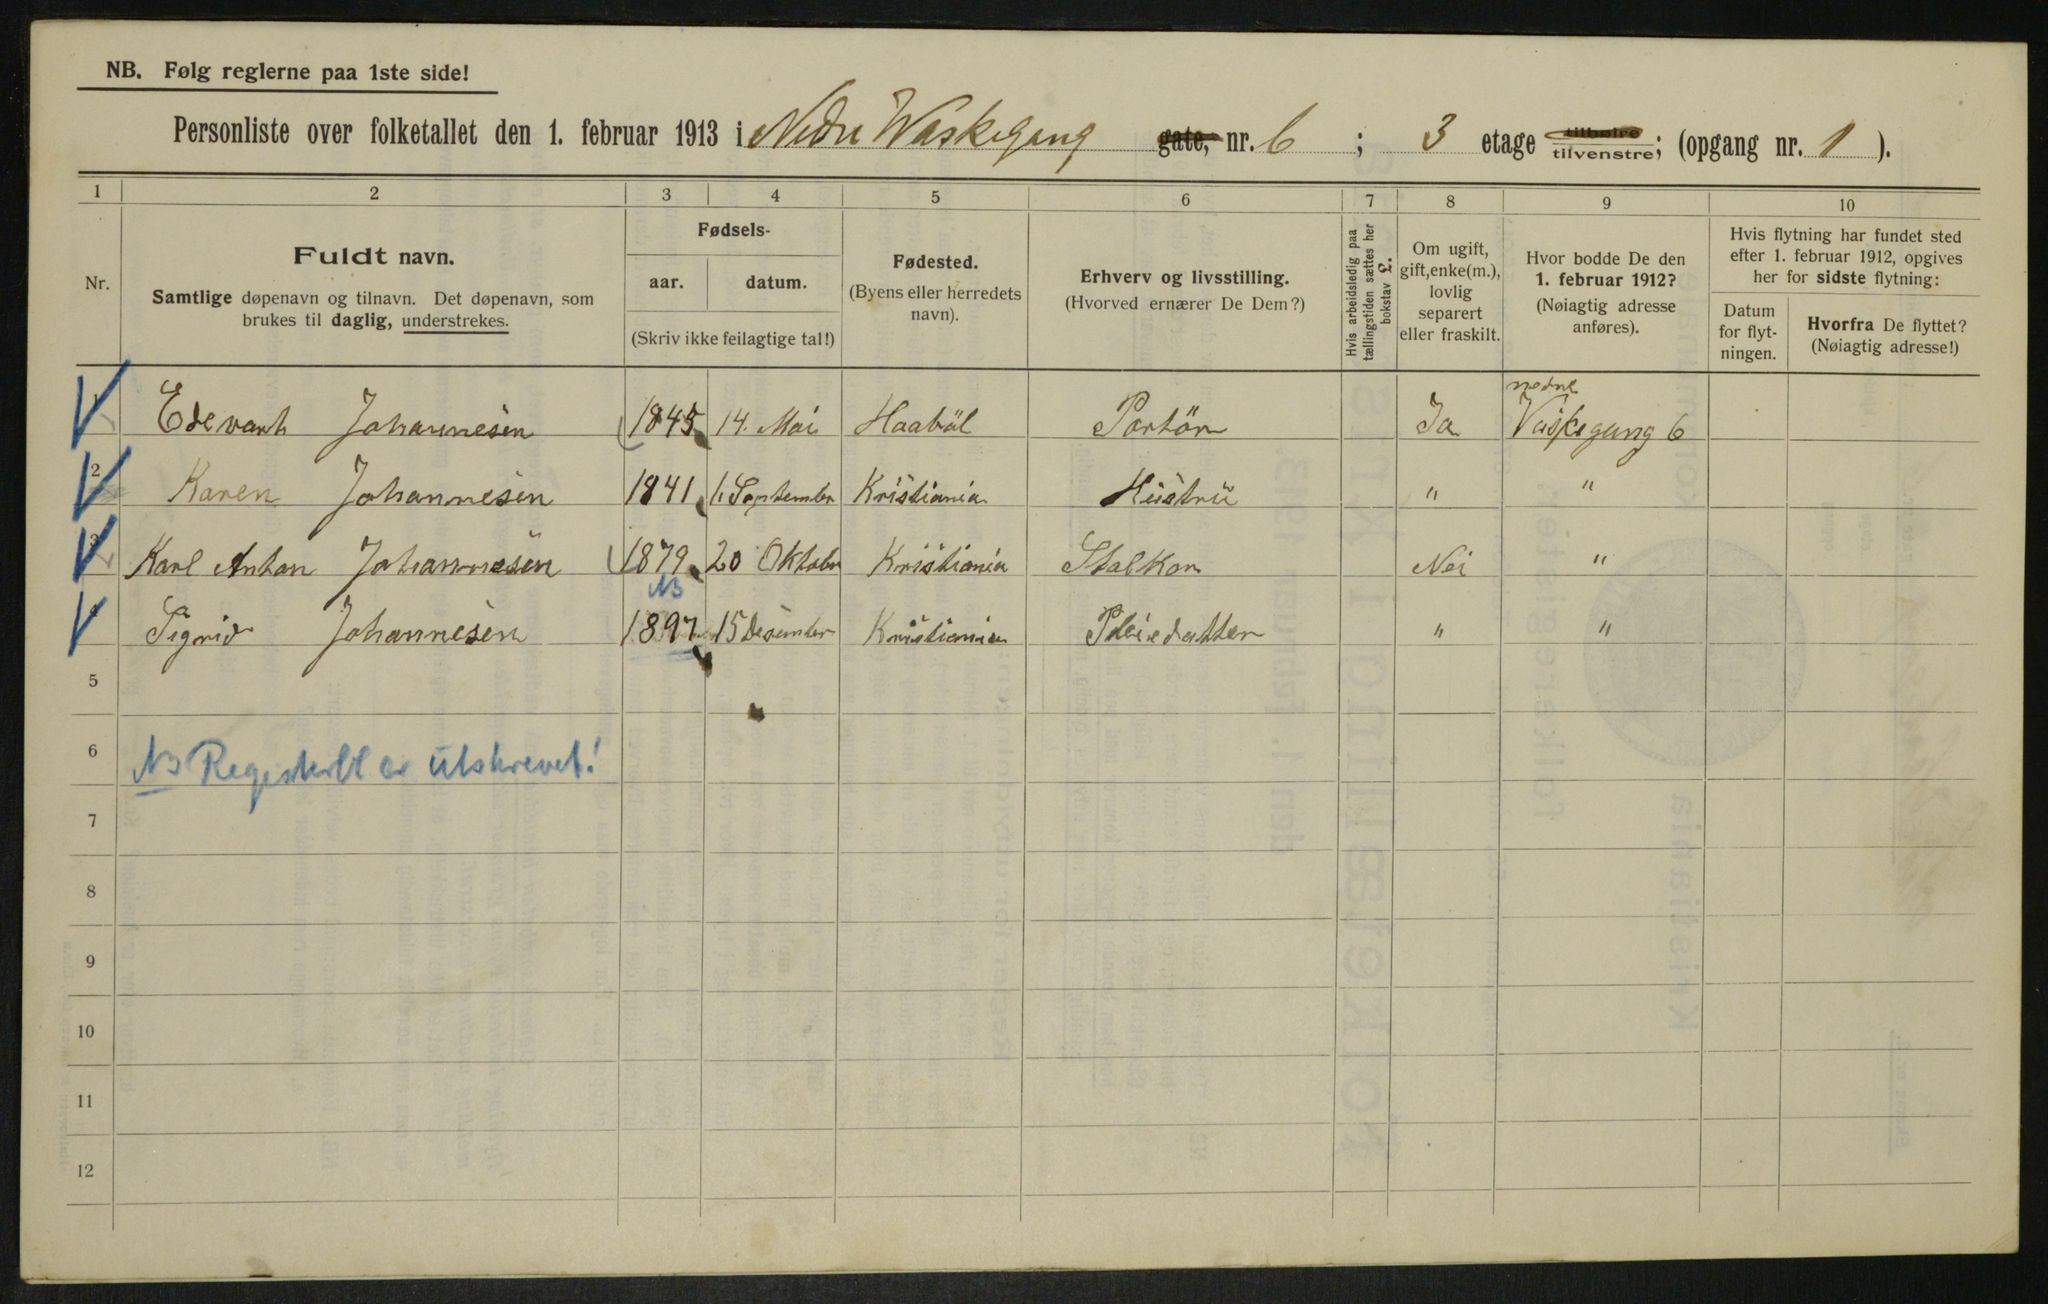 NB. Følg reglerne paa 1ste side!
Personliste over folketallet den 1. februar 1913 i Nedre Waskegang gate, nr. 6 ; 3 etage tilhøire tilvenstre; (opgang nr. 1 ).
1 2 3 4 5 6 7 8 9 10
Nr.
Fuldt navn.
Samtlige døpenavn og tilnavn. Det døpenavn, som
brukes til daglig, understrekes.
Fødsels-
aar. datum.
(Skriv ikke feilagtige tal!)
Fødested.
(Byens eller herredets
navn).
Erhverv og livsstilling.
(Hvorved ernærer De Dem?)
Hvis arbeidsledig paa
tællingstiden sættes her
bokstav £.
Om ugift,
gift, enke(m.),
lovlig
separert
eller fraskilt.
Hvor bodde De den
1. februar 1912?
(Nøiagtig adresse
anføres).
Hvis flytning har fundet sted
efter 1. februar 1912, opgives
her for sidste flytning:
Datum
for flyt-
ningen.
Hvorfra De flyttet?
(Nøiagtig adresse!)
nedre
1 Edevart Johannesen 1845 14. Mai Haabøl Portör Ja Vaskegang 6
2 Karen Johannesen 1841 1. September Kristiania Hustrü " "
3 Karl Anton Johannesen 1879 20 Oktober Kristiania Stalkar Nei "
NB
4 Sigrid Johannesen 1897 15 Desember Kristiania Pleiedatter " "
5
6 NB Registerbl er utskrevet!
7
8
9
10
11
12